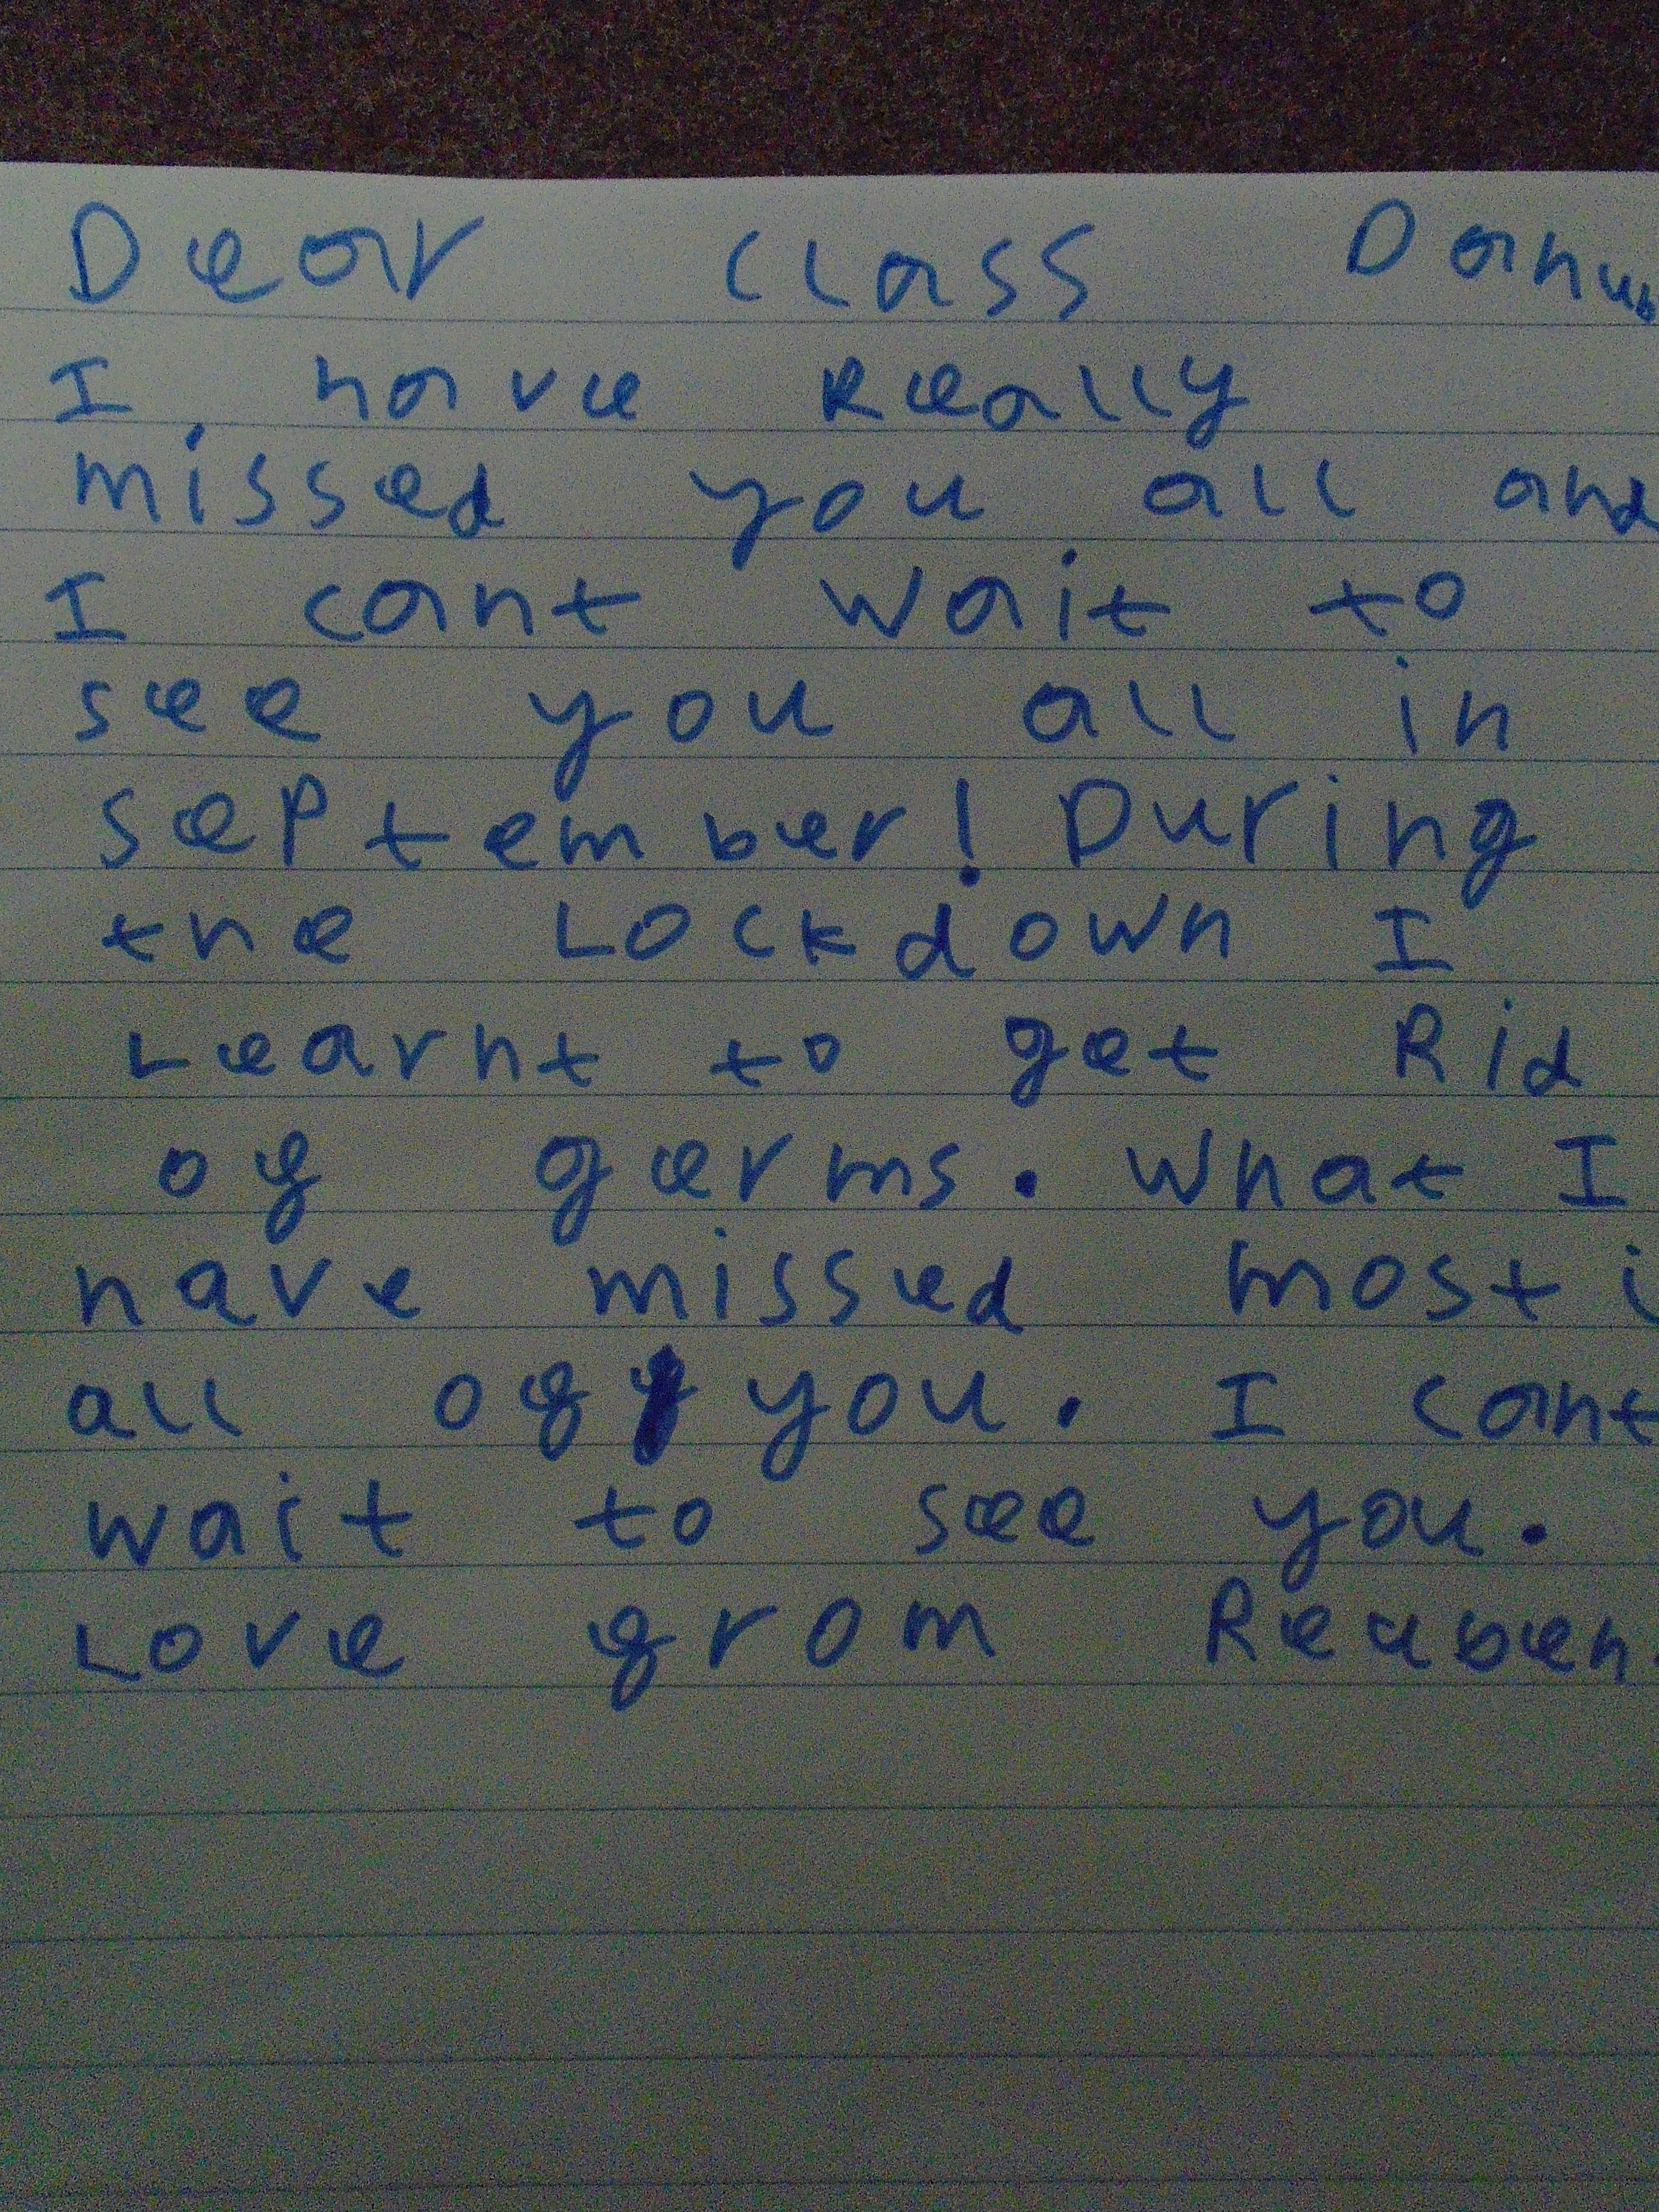 Dear Class Danub
I have Really
missed you all and
I cant wait to
see you all in
SePtember! During
the Lockdown I
Learnt to get Rid
of germs. What I
have missed most i
all of you. I cant
wait to see you.
Love from Reuben.